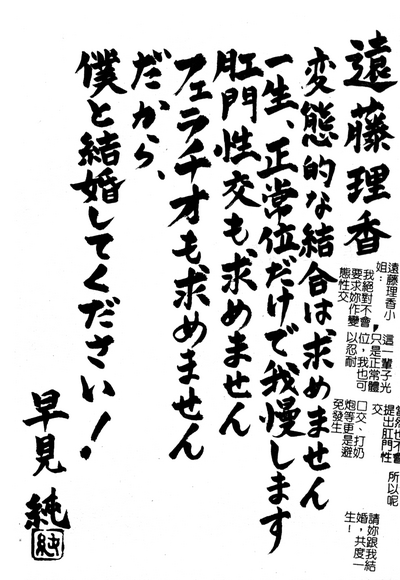 遠藤理香
変態的な結合は求めません
一生、正常位だけで我慢します
肛門性交も、求めません
フェラチオも求めません
だから、
僕と結婚してください!
早見純
純
遠藤理香小
姐:
我絕對不會
要求妳作變
態性交
這一輩子光
只是正常體
位,我也可
以忍耐
當然也不會
提出肛門性
交
口交、打奶
炮等更是避
免發生
所以呢
請妳跟我結
婚,共度一
生!